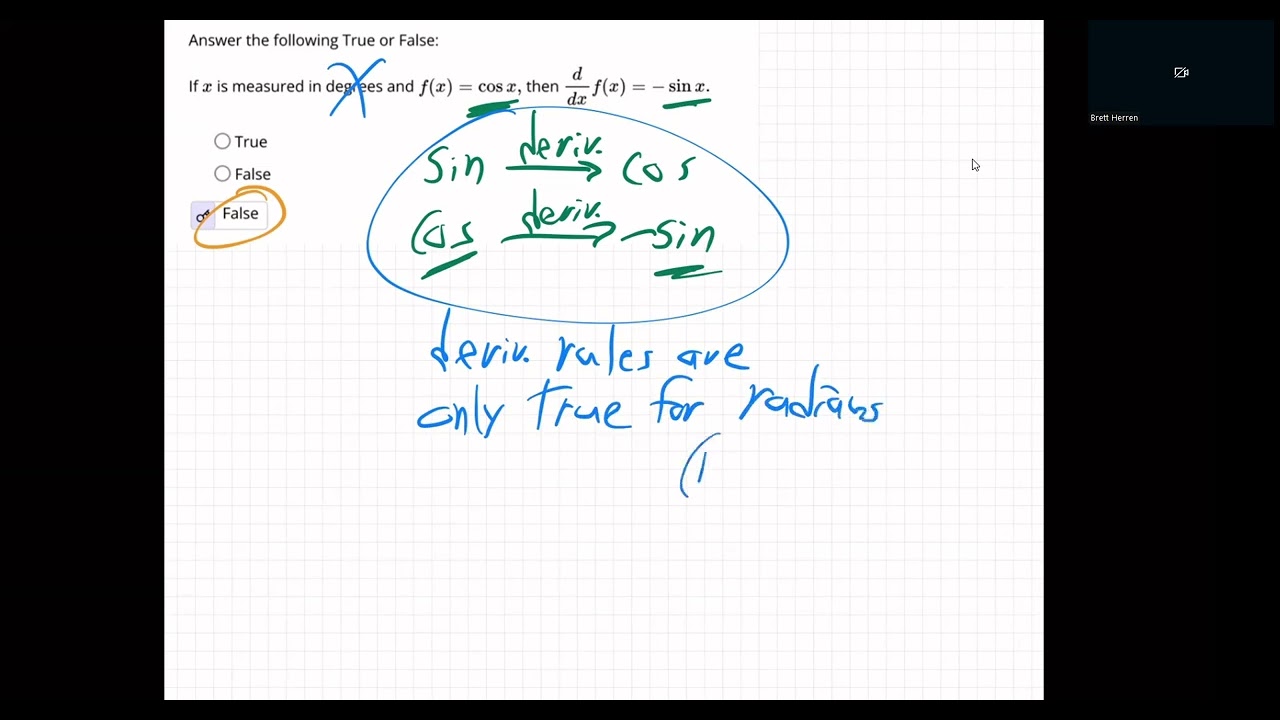 Answer the following True or False:
If x is measured in degrees and f(x) = cos x, then d/dx f(x) = − sin x.
True
False
False
sin deriv. → cos
cos deriv. → -sin
deriv. rules are
only true for radians
(
Brett Herren